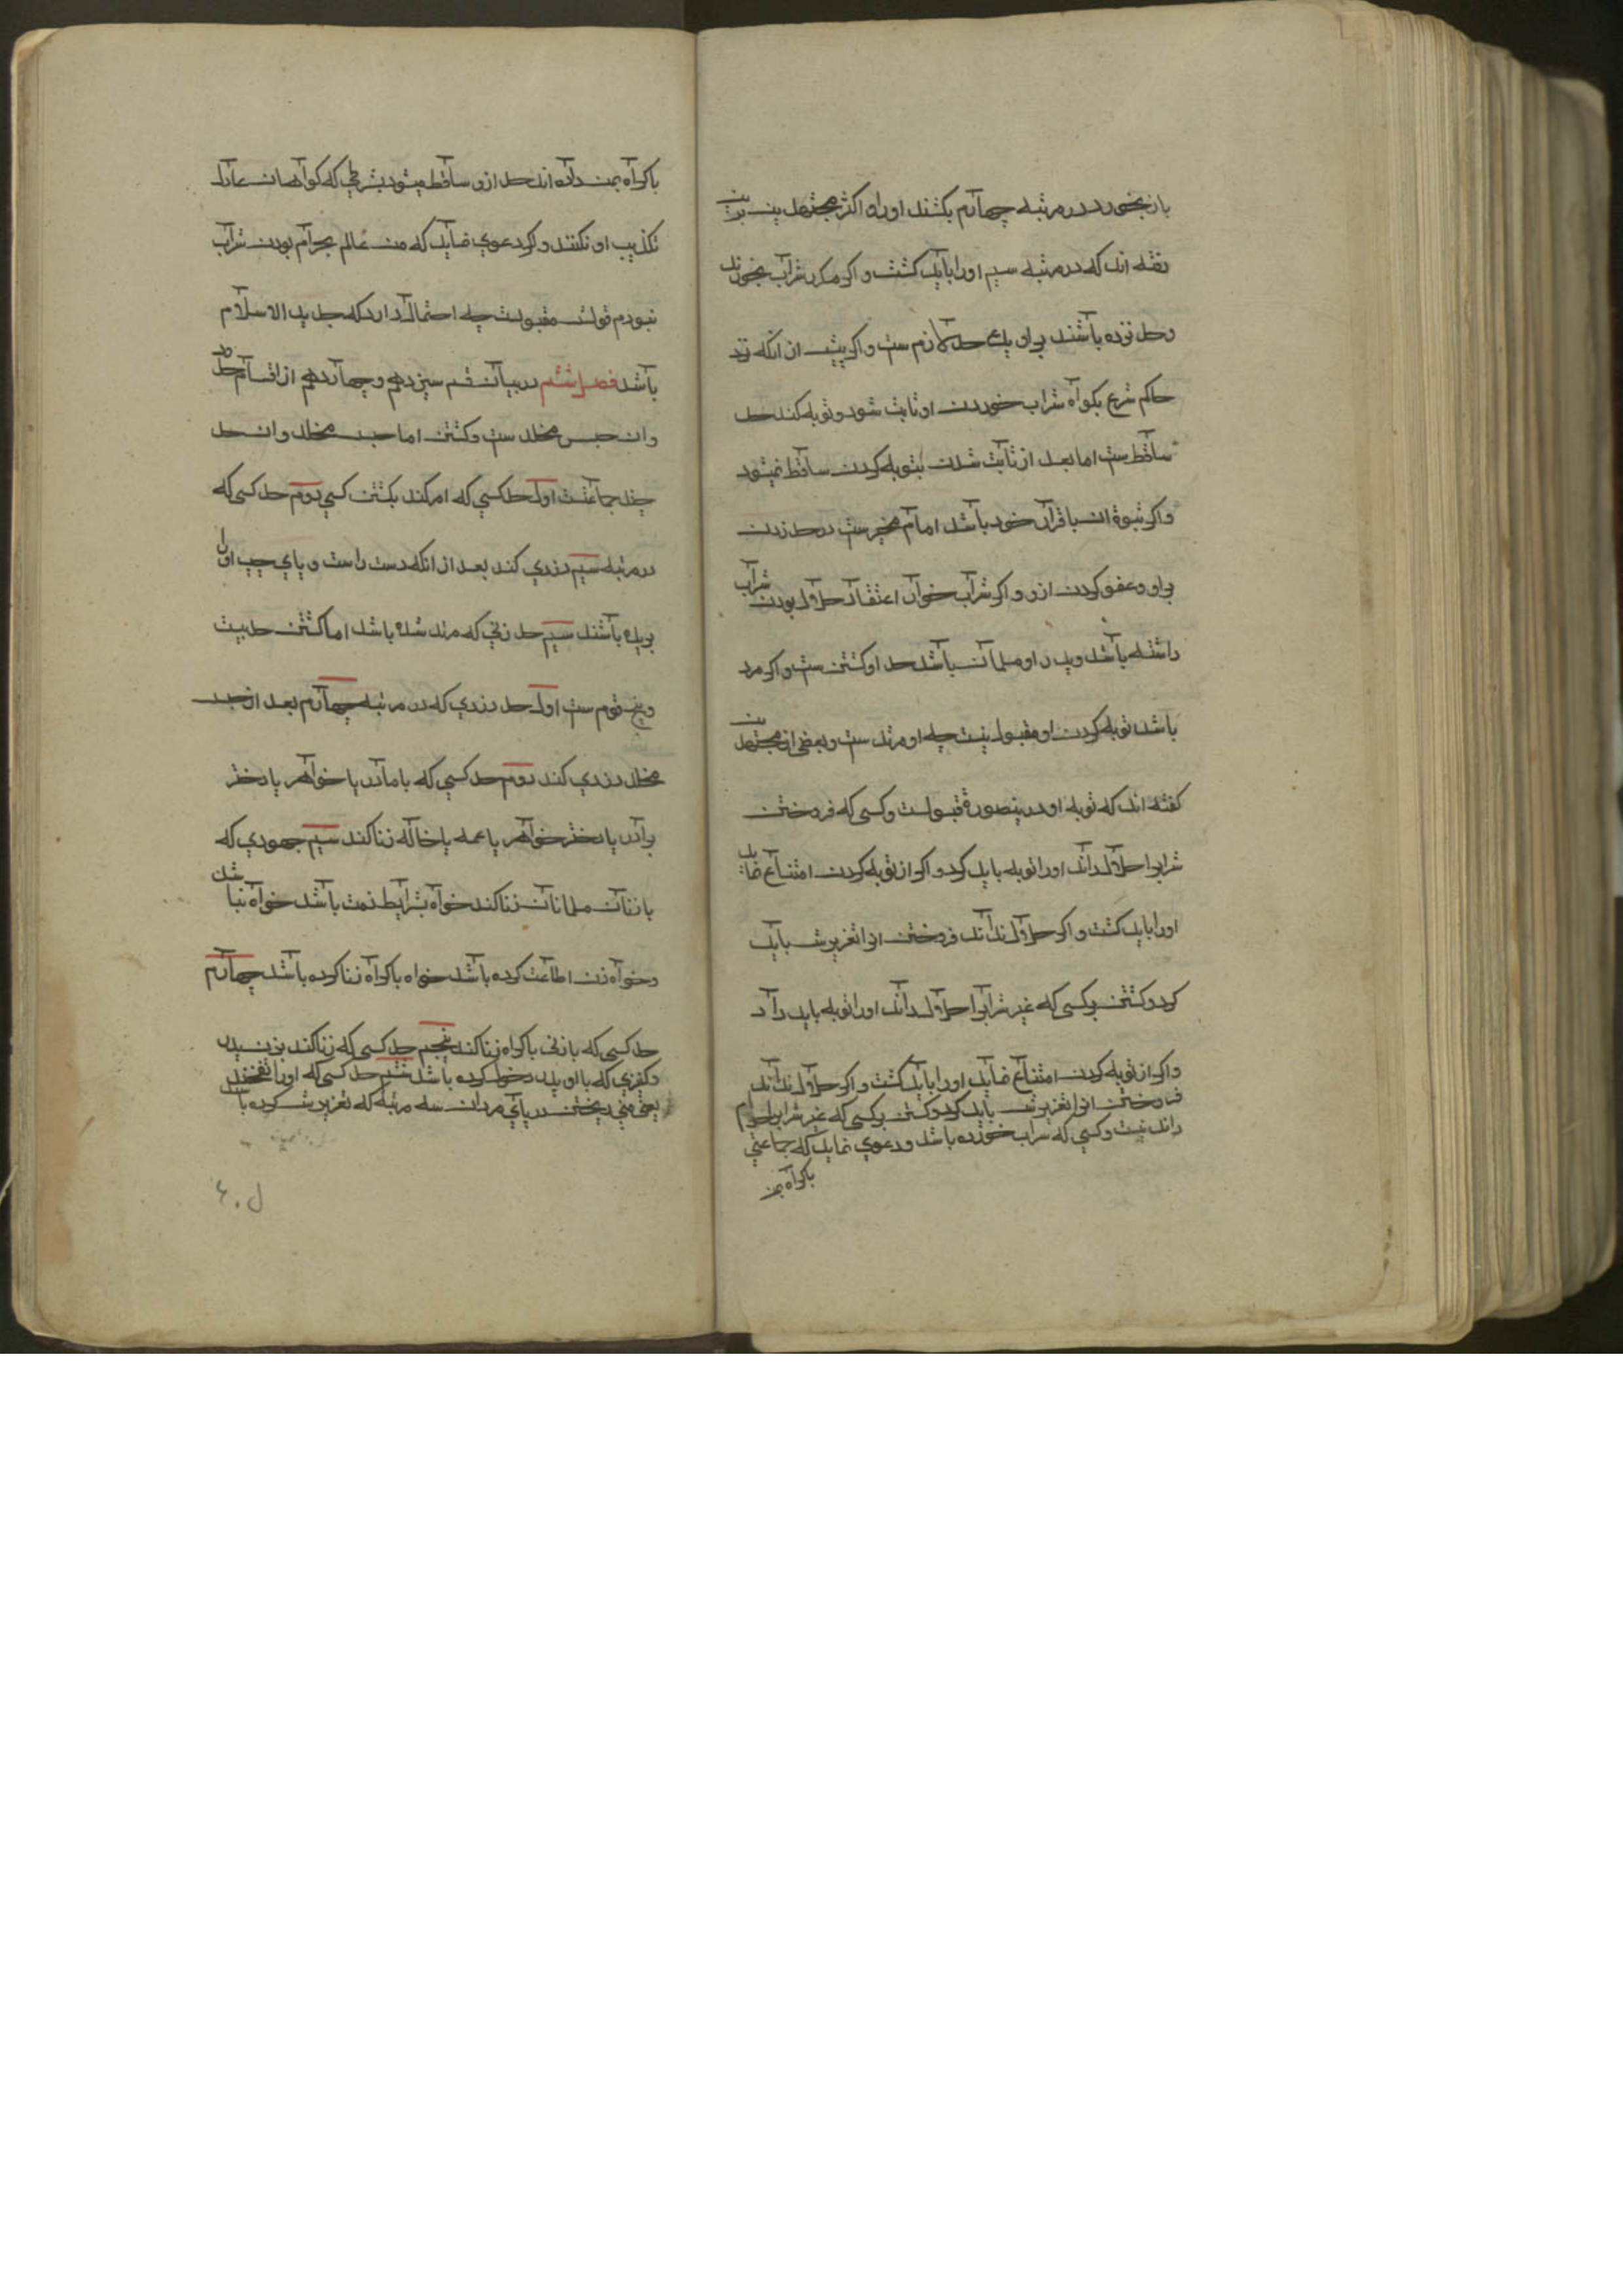 باز بخورد در مرتبه چهارم بکشند او را و اکثر مجتهدین برین
رفته اند که در مرتبه سیم او را باید کشت و اکر مکرر شراب بخورند
وحد نزده باشند بر او یک حد لازم ست و اکر پیش از انکه نزد
حاکم شرع بکواه شراب خوردن او ثابت شود و توبه کند حد
ساقط ست اما بعد از ثابت شدن بتوبه کردن ساقط نمیشود
و اکر ثبوة ان باقرار خود باشد امام مخیر ست در حد زدن
بر او و عفو کردن ازو و اکر شراب خوار اعتقاد حلال بودن شراب
داشته باشد و پدر او مسلمان باشد حد او کشتن ست و اکر مرد
باشد توبه کردن او مقبول نیست چه او مرتد ست و بعضی از مجتهدین
کفته اند که توبه او درینصورة قبولست و کسی که فروختن
شرابرا حلال داند او را توبه باید کرد و اکر از توبه کردن امتناع نماید
او را باید کشت و اکر حلال نداند فروختن انرا تعزیرش باید
کرد و کشتن بر کسی که غیر شرابرا حلال داند او را توبه باید داد
و اکر از توبه کردن امتناع نماید او را باید کشت و اکر حلال نداند
فروختن انرا تعزیرش باید کرد و کشتن بر کسی که غیر شرابرا حرام
داند نیست و کسی که شراب خورده باشد و دعوی نماید که جماعتی
باکراه بمن
باکراه بمن داده اند حد ازو ساقط میشود بشرطی که کواهان عادل
تکذیب او نکنند و اکر دعوی نماید که من عالم بحرام بودن شراب
نبودم قولش مقبولست چه احتمال دارد که جدید الاسلام
باشد فصل ششم در بیان قسم سیزدهم و چهاردهم از اقسام حد
و ان حبس مخلد ست و کشتن اما حبس مخلد و ان حد
چند جماعتست اول حد کسی که امر کند بکشتن کسی دوم حد کسی که
در مرتبه سیم دزدی کند بعد از انکه دست راست و پای چپ او را
بریده باشند سیم حد زنی که مرتد شده باشد اما کشتن حد بیست
و پنج قوم ست اول حد دزدی که در مرتبه چهارم بعد از حبس
مخلد دزدی کند دوم حد کسی که با مادر یا خواهر یا دختر
برادر یا دختر خواهر یا عمه یا خاله زنا کند سیم جهودی که
با زنان مسلمانان زنا کند خواه بشرایط ذمت باشد خواه نباشد
و خواه زن اطاعت کرده باشد خواه باکراه زنا کرده باشد چهارم
حد کسی که با زنی باکراه زنا کند پنجم حد کسی که زنا کند بزن پدر
و کنیزی که با او پدر دخول کرده باشد ششم حد کسی که او را تفخیذ
یعنی منی ریختن در پای مردان سه مرتبه که تعزیرش کرده باشند